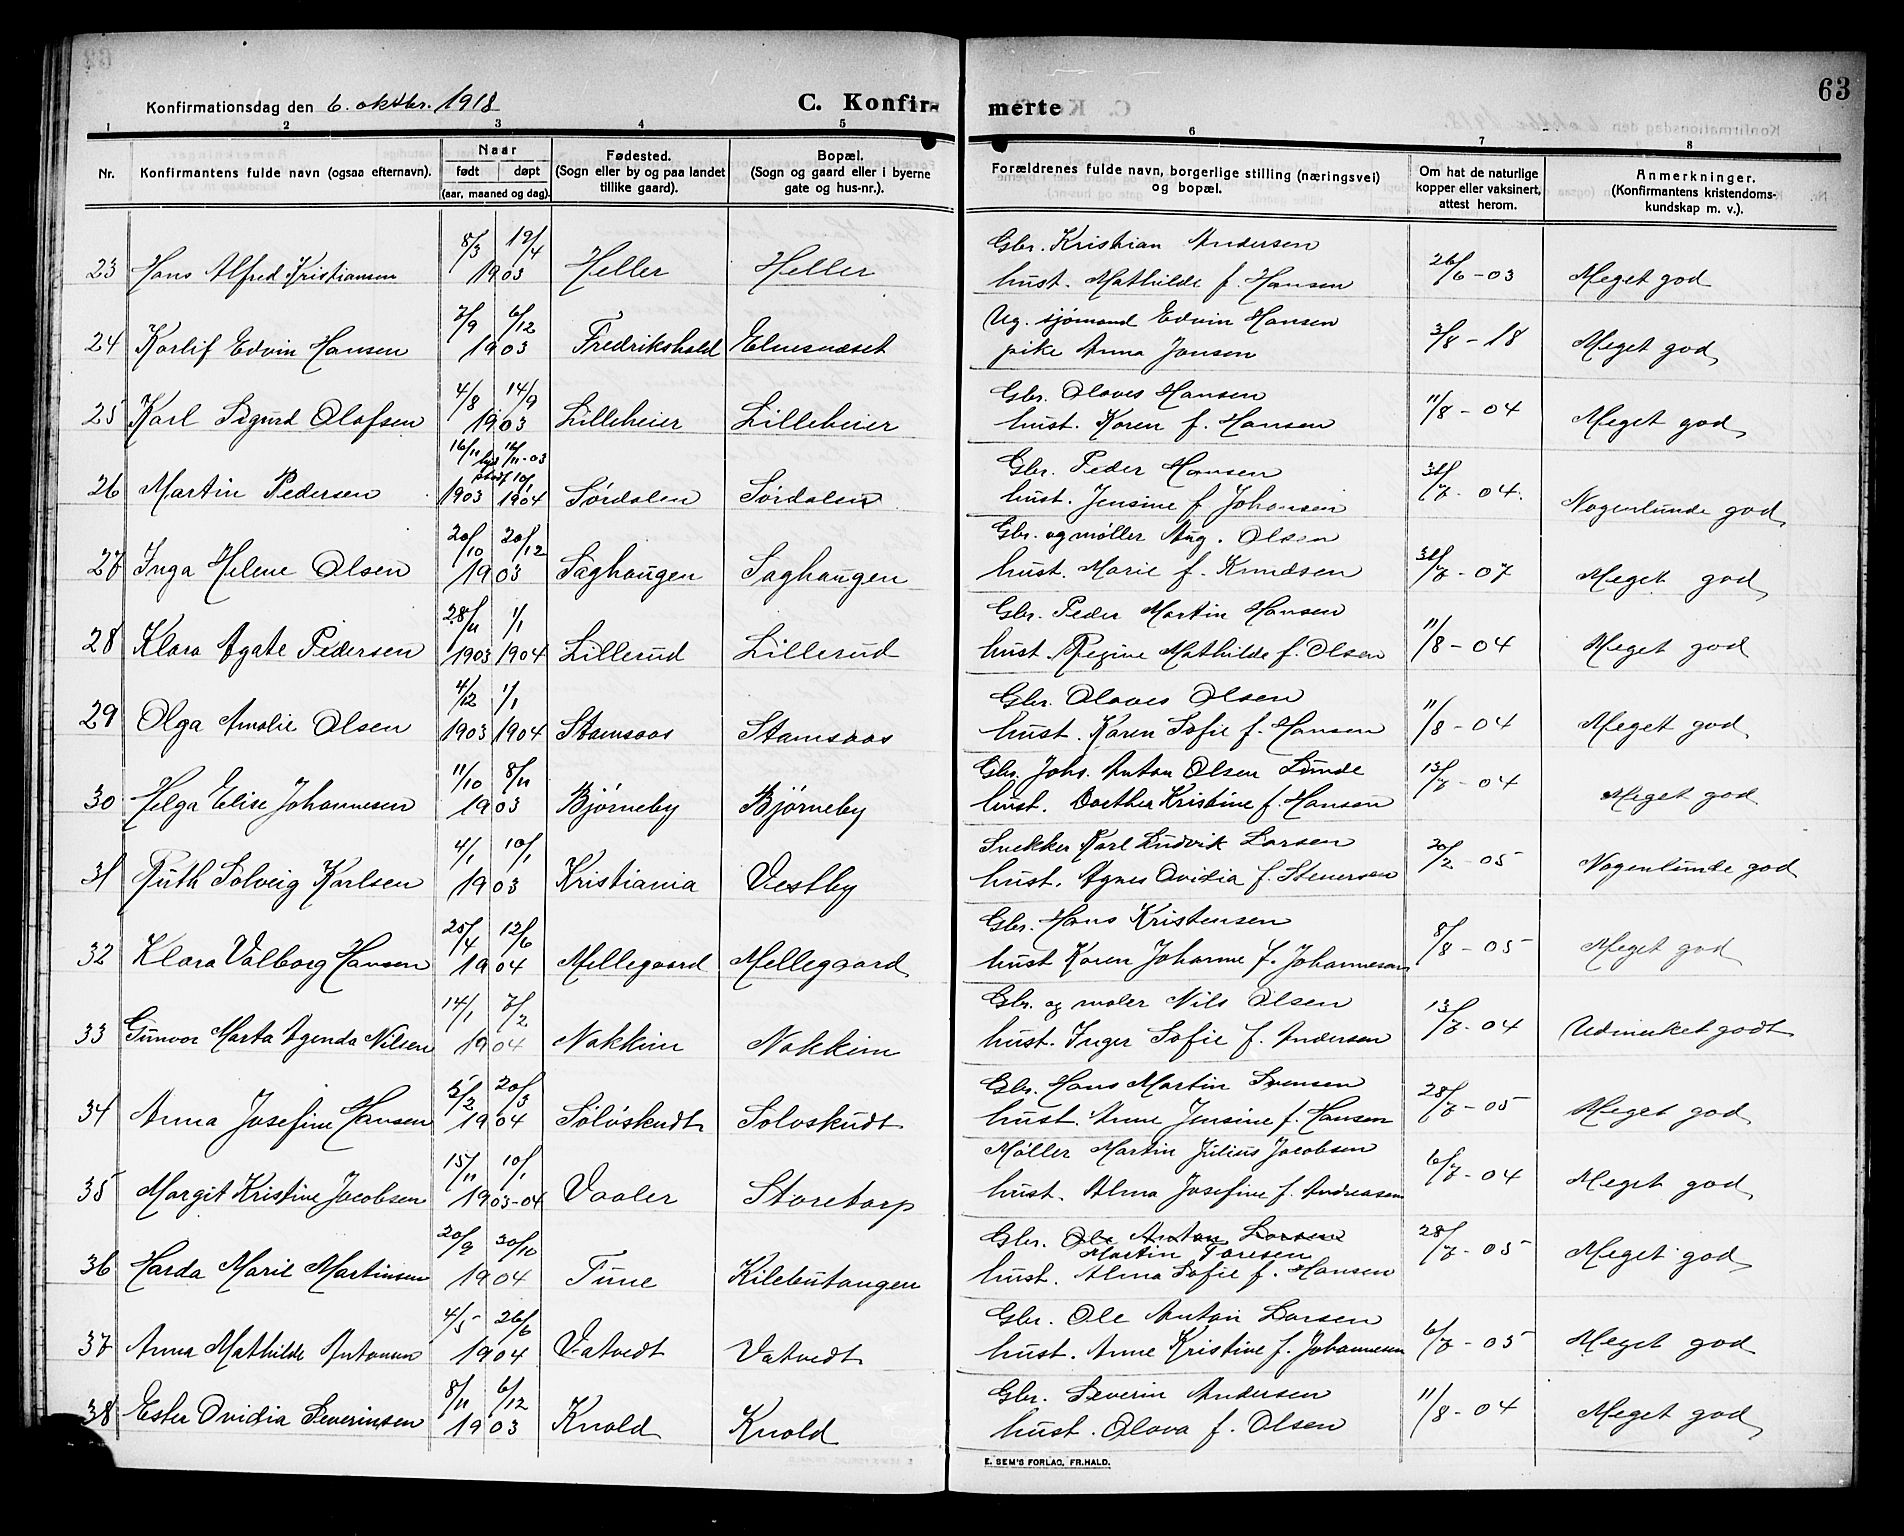 63
Konfirmationsdag den 6. oktbr. 1918
C. Konfir- merte
1 2 3 4 5 6 7 8
Nr. Konfirmantens fulde navn (ogsaa efternavn). Naar født døpt (aar, maaned og dag). Fødested. (Sogn eller by og paa landet tillike gaard). Bopæl. (Sogn og gaard eller i byerne gate og hus-nr.). Forældrenes fulde navn, borgerlige stilling (næringsvei) og bopæl. Om hat de naturlige kopper eller vaksinert, attest herom. Anmerkninger. (Konfirmantens kristendoms- kundskap m. v.).
8/3 19/4 Gbr. Kristian Andersen
23 Hans Alfred Kristiansen 1903 Heller Heller hust. Mathilde f. Hansen 26/6-03 Meget god
7/9 6/12 Ug. sjømand Edvin Hansen
24 Karlif Edvin Hansen 1903 Fredrikshald Elnesnæset pike Anna Jansen 3/8-18 Meget god
4/8 14/9 Gbr. Olaves Hansen
25 Karl Sigurd Olafsen 1903 Lilleheier Lilleheier hust. Karen f. Hansen 11/8-04 Meget god
16/11 hjd 16/11-03 stadf 10/1 Gbr. Peder Hansen
26 Martin Pedersen 1903 1904 Sørdalen Sørdalen hust. Jensine f Johansen 31/7-04. Nogenlunde god
20/10 20/12 Gbr. og møller Aug. Olsen
27 Inga Helene Olsen 1903 Saghaugen Saghaugen hust. Marie f. Knudsen 31/7-07 Meget god
28/11 1/1 Gbr. Peder Martin Hansen
28 Klara Agate Pedersen 1903 1904 Lillerud Lillerud hust. Regine Mathilde f. Olsen 11/8-04 Meget god
4/12 1/1 Gbr. Olaves Olsen
29 Olga Amalie Olsen 1903 1904 Stamsaas Stamsaas hust. Karen Sofie f. Hansen 11/8-04 Meget god
11/10 8/11 Gbr. Johs. Anton Olsen Lunde
30 Helga Elise Johannesen 1903 Bjørneby Bjørneby hust. Dorthea Kristine f. Hansen 13/7-04 Meget god
4/1 10/1 Snekker Karl Ludvik Larsen
31 Ruth Solveig Karlsen 1903 Kristiania Vestby hust. Agnes Ovidia f. Stenersen 20/2-05 Nogenlunde god
25/4 12/6 Gbr. Hans Kristensen
32 Klara Valborg Hansen 1904 Mellegaard Mellegaard hust Karen Johanne f. Johannesen 8/8-05 Meget god
14/1 7/2 Gbr. og maler Nils Olsen
33 Gunvor Marta Agenda Nilsen 1904 Nakkim Nakkim hust. Inger Sofie f. Andersen 13/7-04 Udmerket godt
5/2 20/3 Gbr. Hans Martin Svensen
34 Anna Josefine Hansen 1904 Søløskudt Soloskudt hust. Anne Jensine f. Hansen 28/7-05 Meget god
15/11 10/1 Møller Martin Julius Jacobsen
35 Margit Kristine Jacobsen 1903-04 Vaaler Storetorp hust. Alma Josefine f. Andreasen 6/7-04 Meget god
20/9 30/10 Gbr. Ole Anton Larsen
Martin Toresen
36 Harda Marie Martinsen 1904 Tune Kilebutangen hust. Alma Sofie f. Hansen 28/7-05 Meget god
4/5 26/6 Gbr. Ole Anton Larsen
37 Anna Mathilde Antonsen 1904 Vatvedt Vatvedt hust. Anne Kristine f. Johannesen 6/7-05 Meget god
8/11 6/12 Gbr. Severin Andersen
38 Ester Ovidia Severinsen 1903 Knold Knold hust. Olava f. Olsen 11/8-04 Meget god
E. SEM'S FORLAG, FR.HALD.